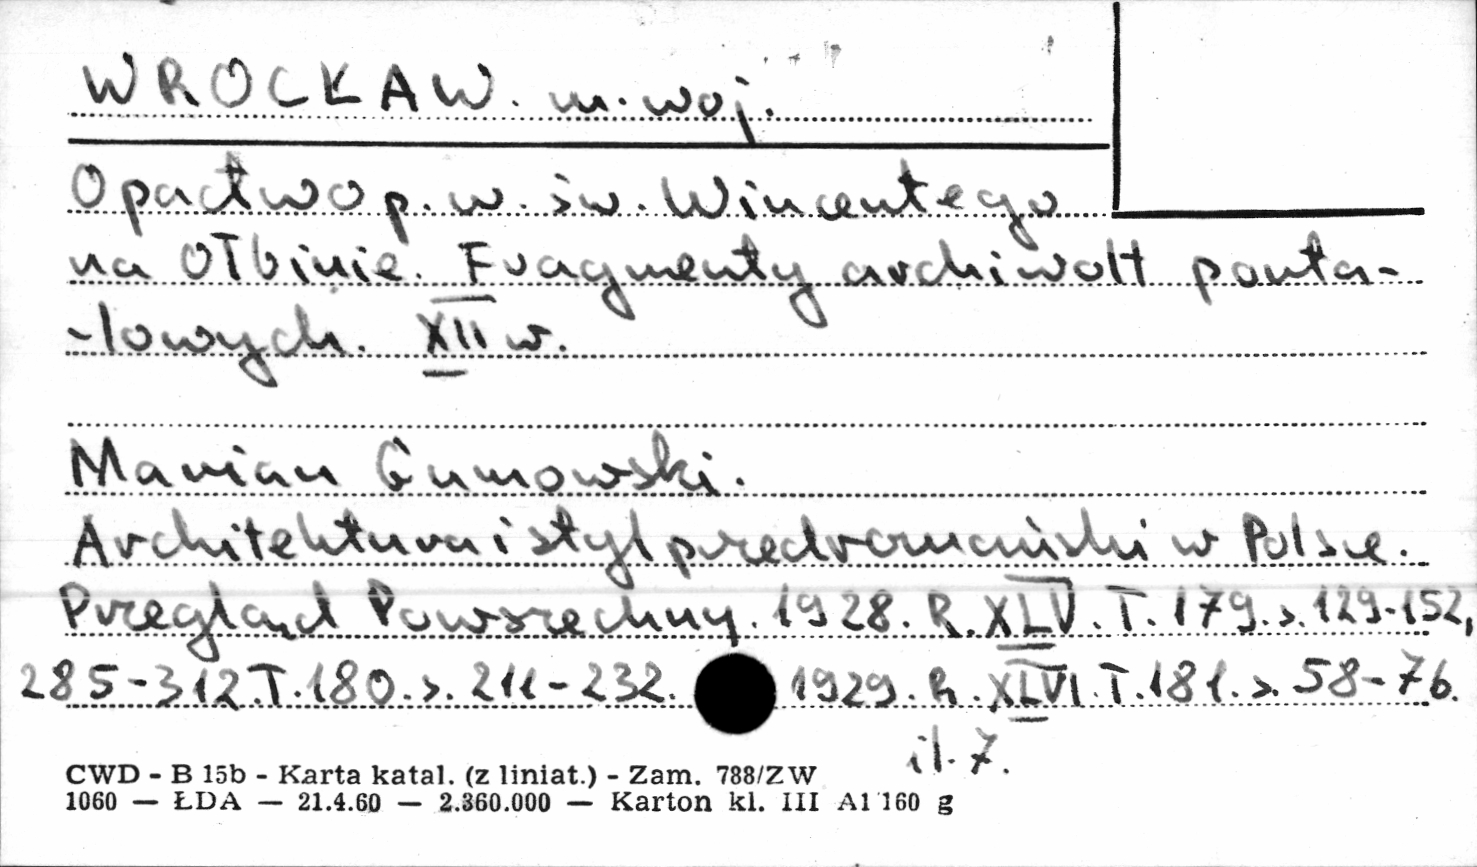 WROCŁAW. m. woj.
Opactwo p. w. św. Wincentego
na Ołbinie. Fragmenty archiwolt porta-
-lowych. XII w.
Marian Gumowski.
Architektura i styl przedromański w Polsce.
Przegląd Powszechny. 1928. R. XLV. T. 179. s. 129-152,
285-312. T. 180. s. 211-232. 1929. R. XLVI. T. 181. s. 58-76.
il. 7.
CWD - B 15b - Karta katal. (z liniat.) - Zam. 788/ZW
1060 — ŁDA — 21.4.60 — 2.360.000 — Karton kl. III A1 160 g